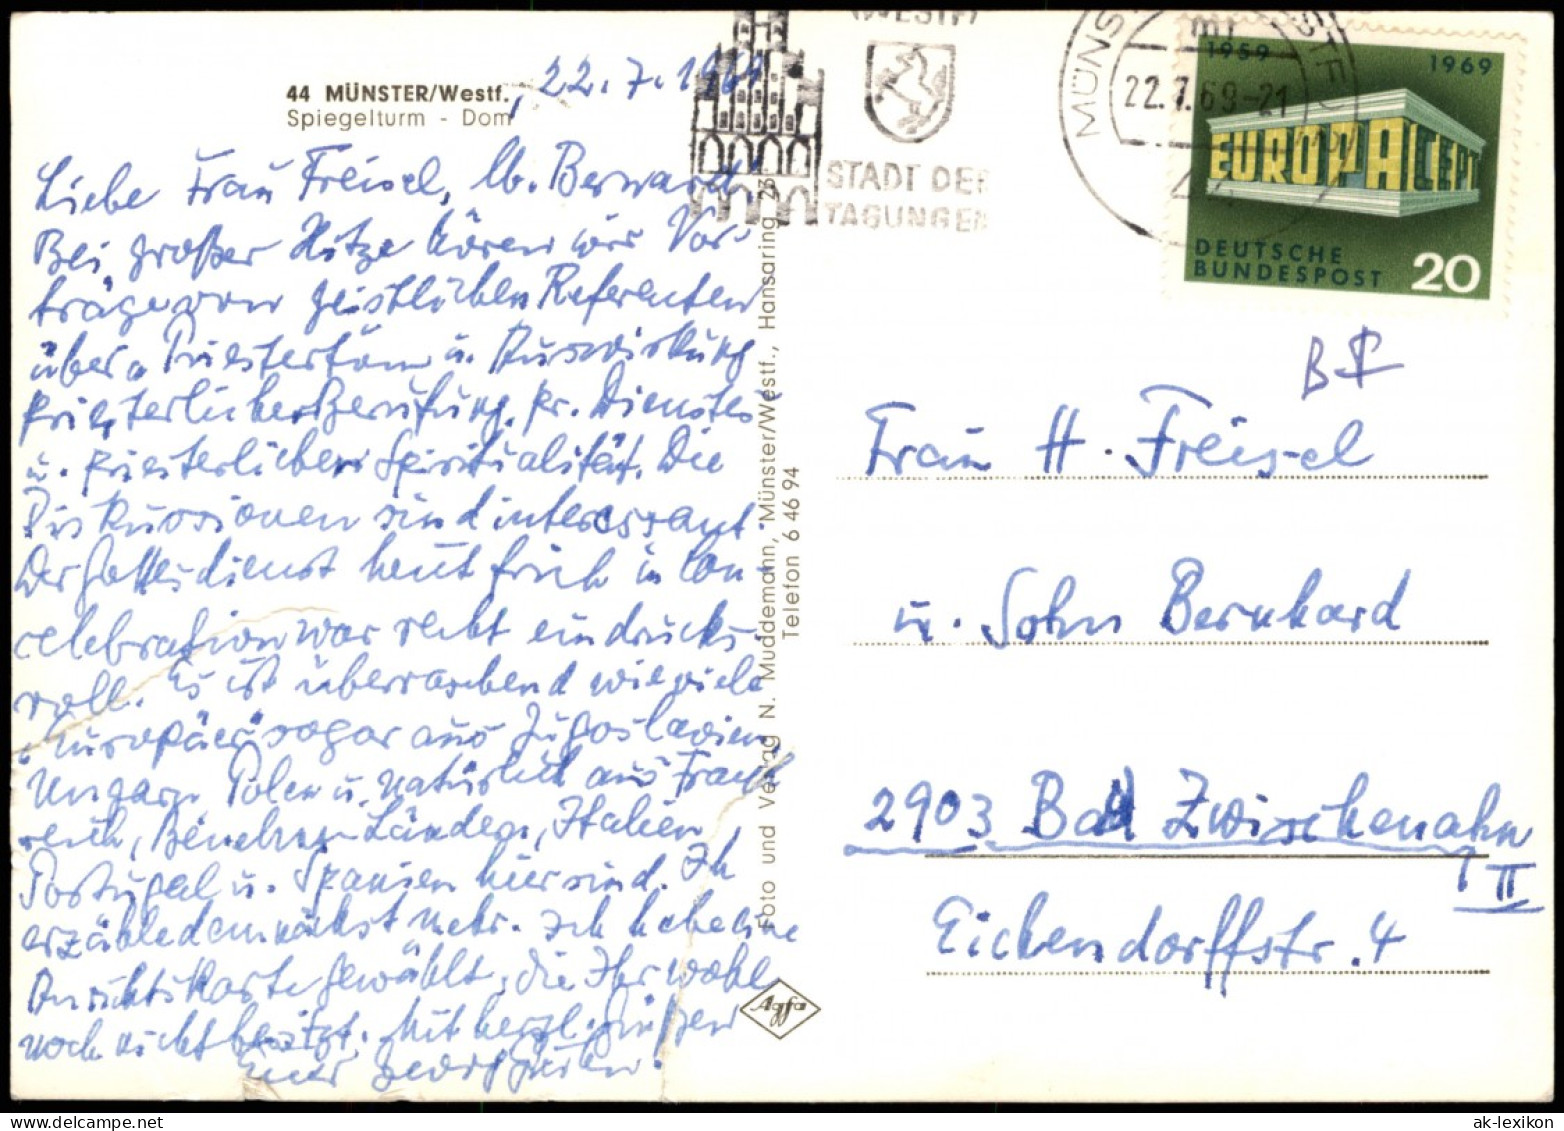 44 MÜNSTER/Westf.
Spiegelturm - Dom
, 22.7.1969
Liebe Frau Freisel, lb. Bernward
Bei großer Hitze hören wir Vor-
träge von geistlichen Referenten
über Priestertum u. Auswirkung
priesterlicher Berufung, pr. Dienstes
u. priesterlichen Spiritualität. Die
Diskussionen sind interessant.
Der Gottesdienst heut früh in Con-
celebration war recht eindrucks-
voll. Es ist überraschend wieviele
"Europäer" sogar aus Jugoslavien,
Ungarn, Polen u. natürlich aus Frank-
reich, Benelux-Ländern, Italien,
Portugal u. Spanien hier sind. Ich
erzähle demnächst mehr. Ich habe eine
Ansichtskarte gewählt, die Ihr wohl
noch nicht besitzt. Mit herzl. Grüßen
Euer Georg
Foto und Verlag N. Muddemann, Münster/Westf., Hansaring 23
Telefon 6 46 94
Agfa
(WESTF)
STADT DER
TAGUNGEN
MÜNS STF
22.7.69-21
44
1959 1969
EUROPA CEPT
DEUTSCHE
BUNDESPOST 20
Frau H. Freisel
u. Sohn Bernhard
2903 Bad Zwischenahn
II
Eichendorffstr. 4
ak-lexikon.com